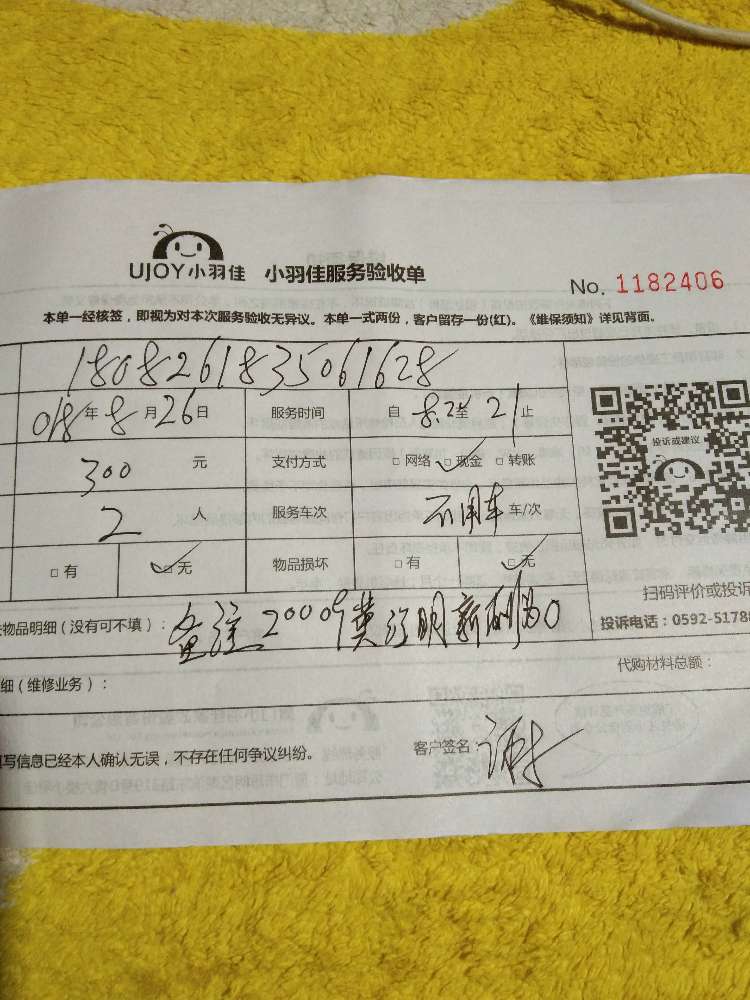 UJOY小羽佳 小羽佳服务验收单
No. 1182406
本单一经核签，即视为对本次服务验收无异议。本单一式两份，客户留存一份(红)。《维保须知》详见背面。
1808261835061628
018年8月26日 服务时间 自 至21止
300 元 支付方式 □网络 □现金 □转账
2 人 服务车次 不用车 车/次
□有 □无 物品损坏 □有 □无
投诉或建议
扫码评价或投诉
物品明细（没有可不填）： 备注 20009黄 明新
投诉电话：0592-5178
代购材料总额：
细（维修业务）：
写信息已经本人确认无误，不存在任何争议纠纷。 客户签名：